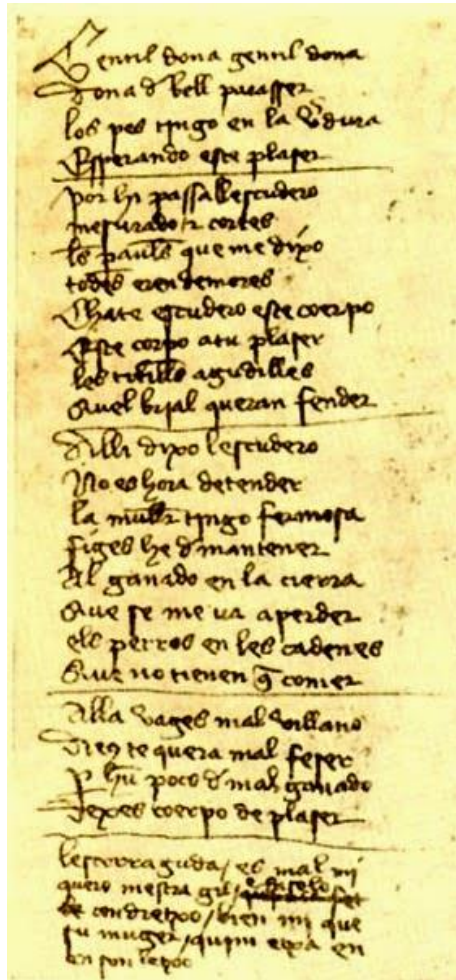 Gentil dona gentil dona
dona d bell pareser
los pes tingo en la vdura
esperando este plaser
por hi passa llescudero
mesurado e cortes
les paules que me dixo
todes eren demores
thate escudero este coerpo
este corpo atu plaser
les titilles agudilles
quel brial queran fender
alli dixo lescudero
no es hora detender
la muller tingo fermosa
figes he d mantener
al ganado en la cierra
que se me va aperder
els perros en les cadenes
que no tienen q comer
alla vages mal villano
dieus te quera mal feser
p hun poco d mal ganado
dexes coerpo de plaser
es mal mi
quero mestra gil
bien mi que
su muger